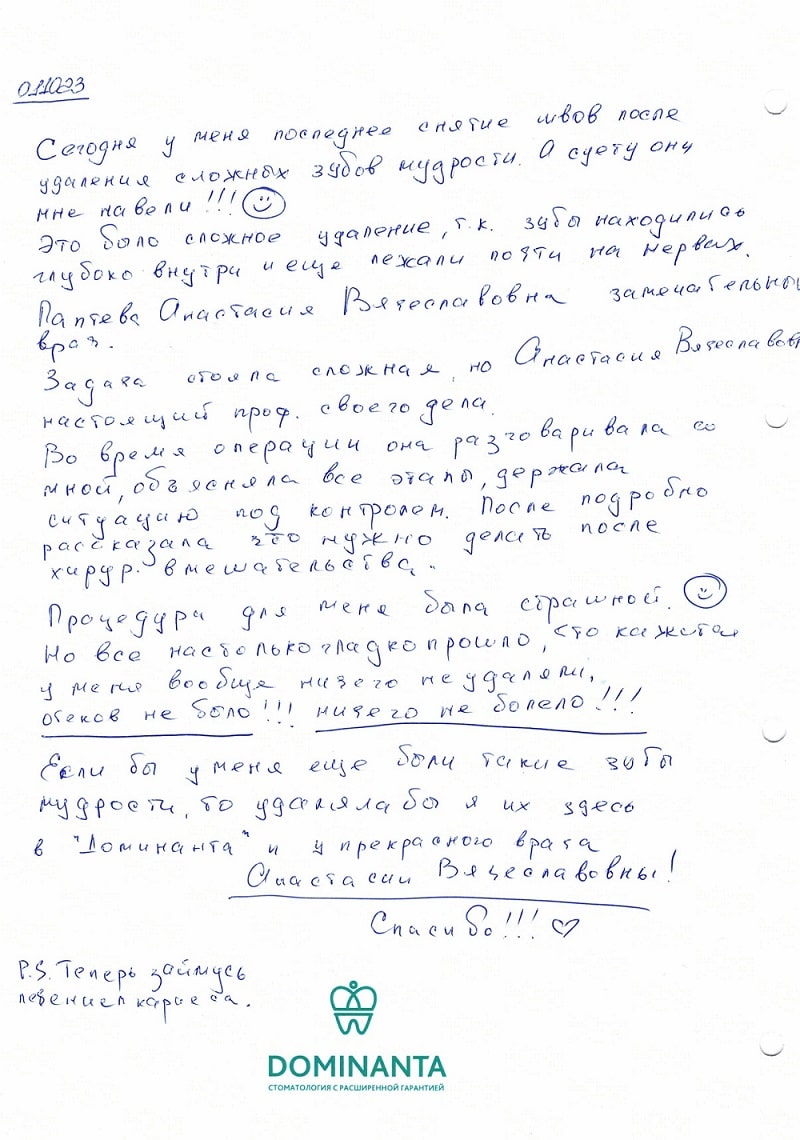 011023
Сегодня у меня последнее снятие швов после
удаления сложных зубов мудрости. А суету они
мне навели!!!
Это было сложное удаление, т.к. зубы находились
глубоко внутри и еще лежали почти на нервах.
Лаптева Анастасия Вячеславовна замечательный
врач.
Задача стояла сложная, но Анастасия Вячеславовн
настоящий проф. своего дела.
Во время операции она разговаривала со
мной, объясняла все этапы, держала
ситуацию под контролем. После подробно
рассказала что нужно делать после
хирур. вмешательства.
Процедура для меня была страшной.
Но все настолько гладко прошло, что кажется
у меня вообще ничего не удаляли,
отеков не было!!! ничего не болело!!!
Если бы у меня еще были такие зубы
мудрости, то удаляла бы я их здесь
в "Доминанта" и у прекрасного врача
Анастасии Вячеславовны!
Спасибо!!! ♡
P.S. Теперь займусь
лечением кариеса.
DOMINANTA
СТОМАТОЛОГИЯ С РАСШИРЕННОЙ ГАРАНТИЕЙ